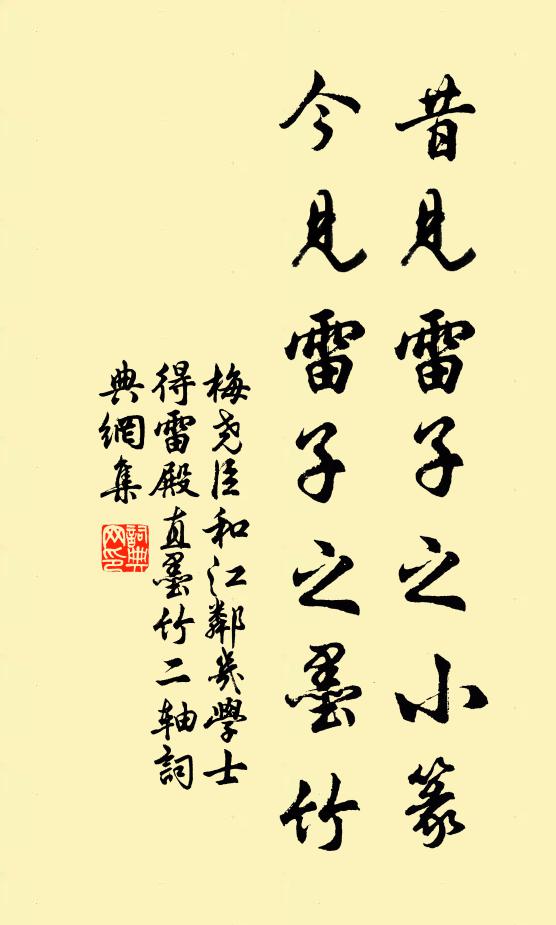 昔見雷子之小篆
今見雷子之墨竹
梅堯臣和江鄰幾學士
得雷殿直墨竹二軸詞
典網集
詞典網印